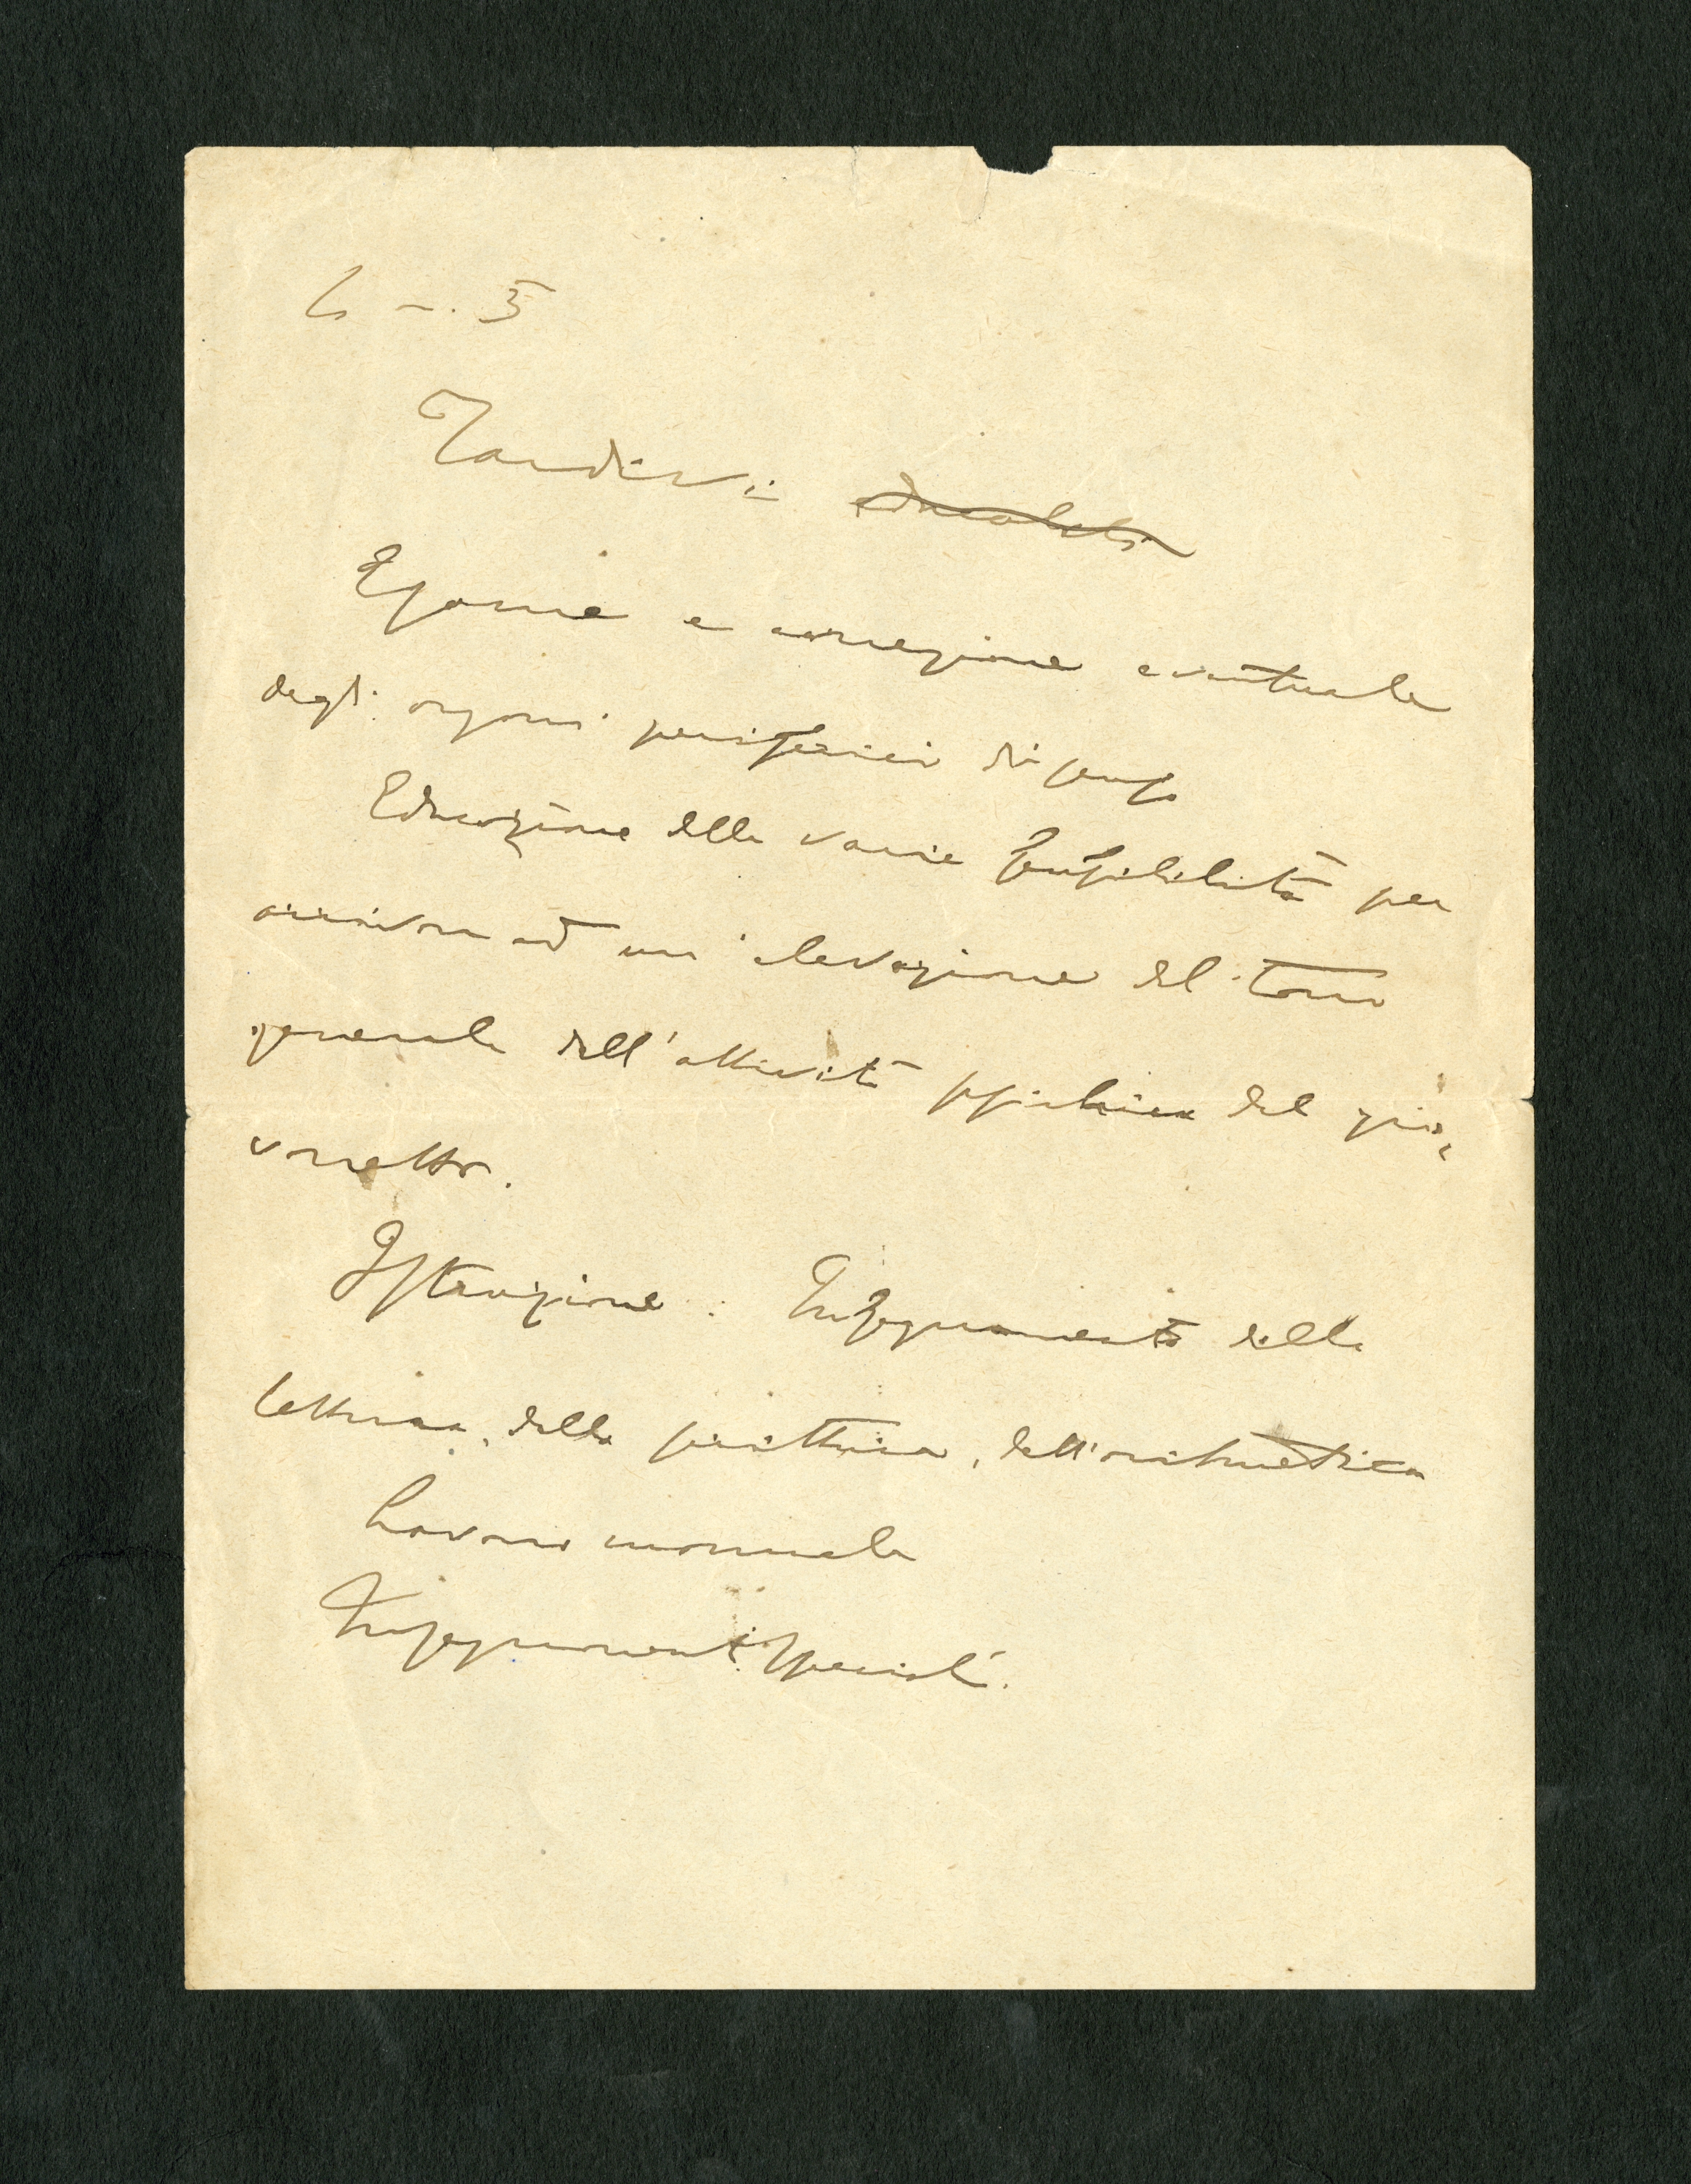 Tardivi educabili
Esame e correzione eventuale
degli organi periferici di senso
Educazione delle varie sensibilità per
arrivare ad un'elevazione del tono
generale dell'attività psichica del gio=
vanetto.
Istruzione: Insegnamento della
lettura, della scrittura, dell'aritmetica
Lavoro manuale
Insegnamenti speciali.